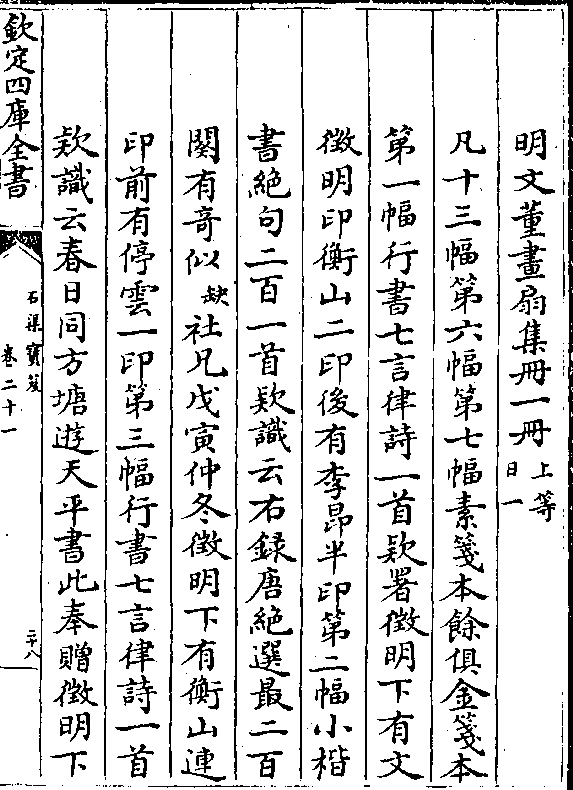 明文董畫扇集冊一冊 上等 日一
凡十三幅第六幅第七幅素箋本餘俱金箋本
第一幅行書七言律詩一首款署徵明下有文
徵明印衡山二印後有李昂半印第二幅小楷
書絕句二百一首款識云右錄唐絕選最二百
闋有奇似 缺 社兄戊寅仲冬徵明下有衡山連
印前有停雲一印第三幅行書七言律詩一首
款識云春日同方塘遊天平書此奉贈徵明下
欽定四庫全書
石渠寶笈
卷二十一
二十八